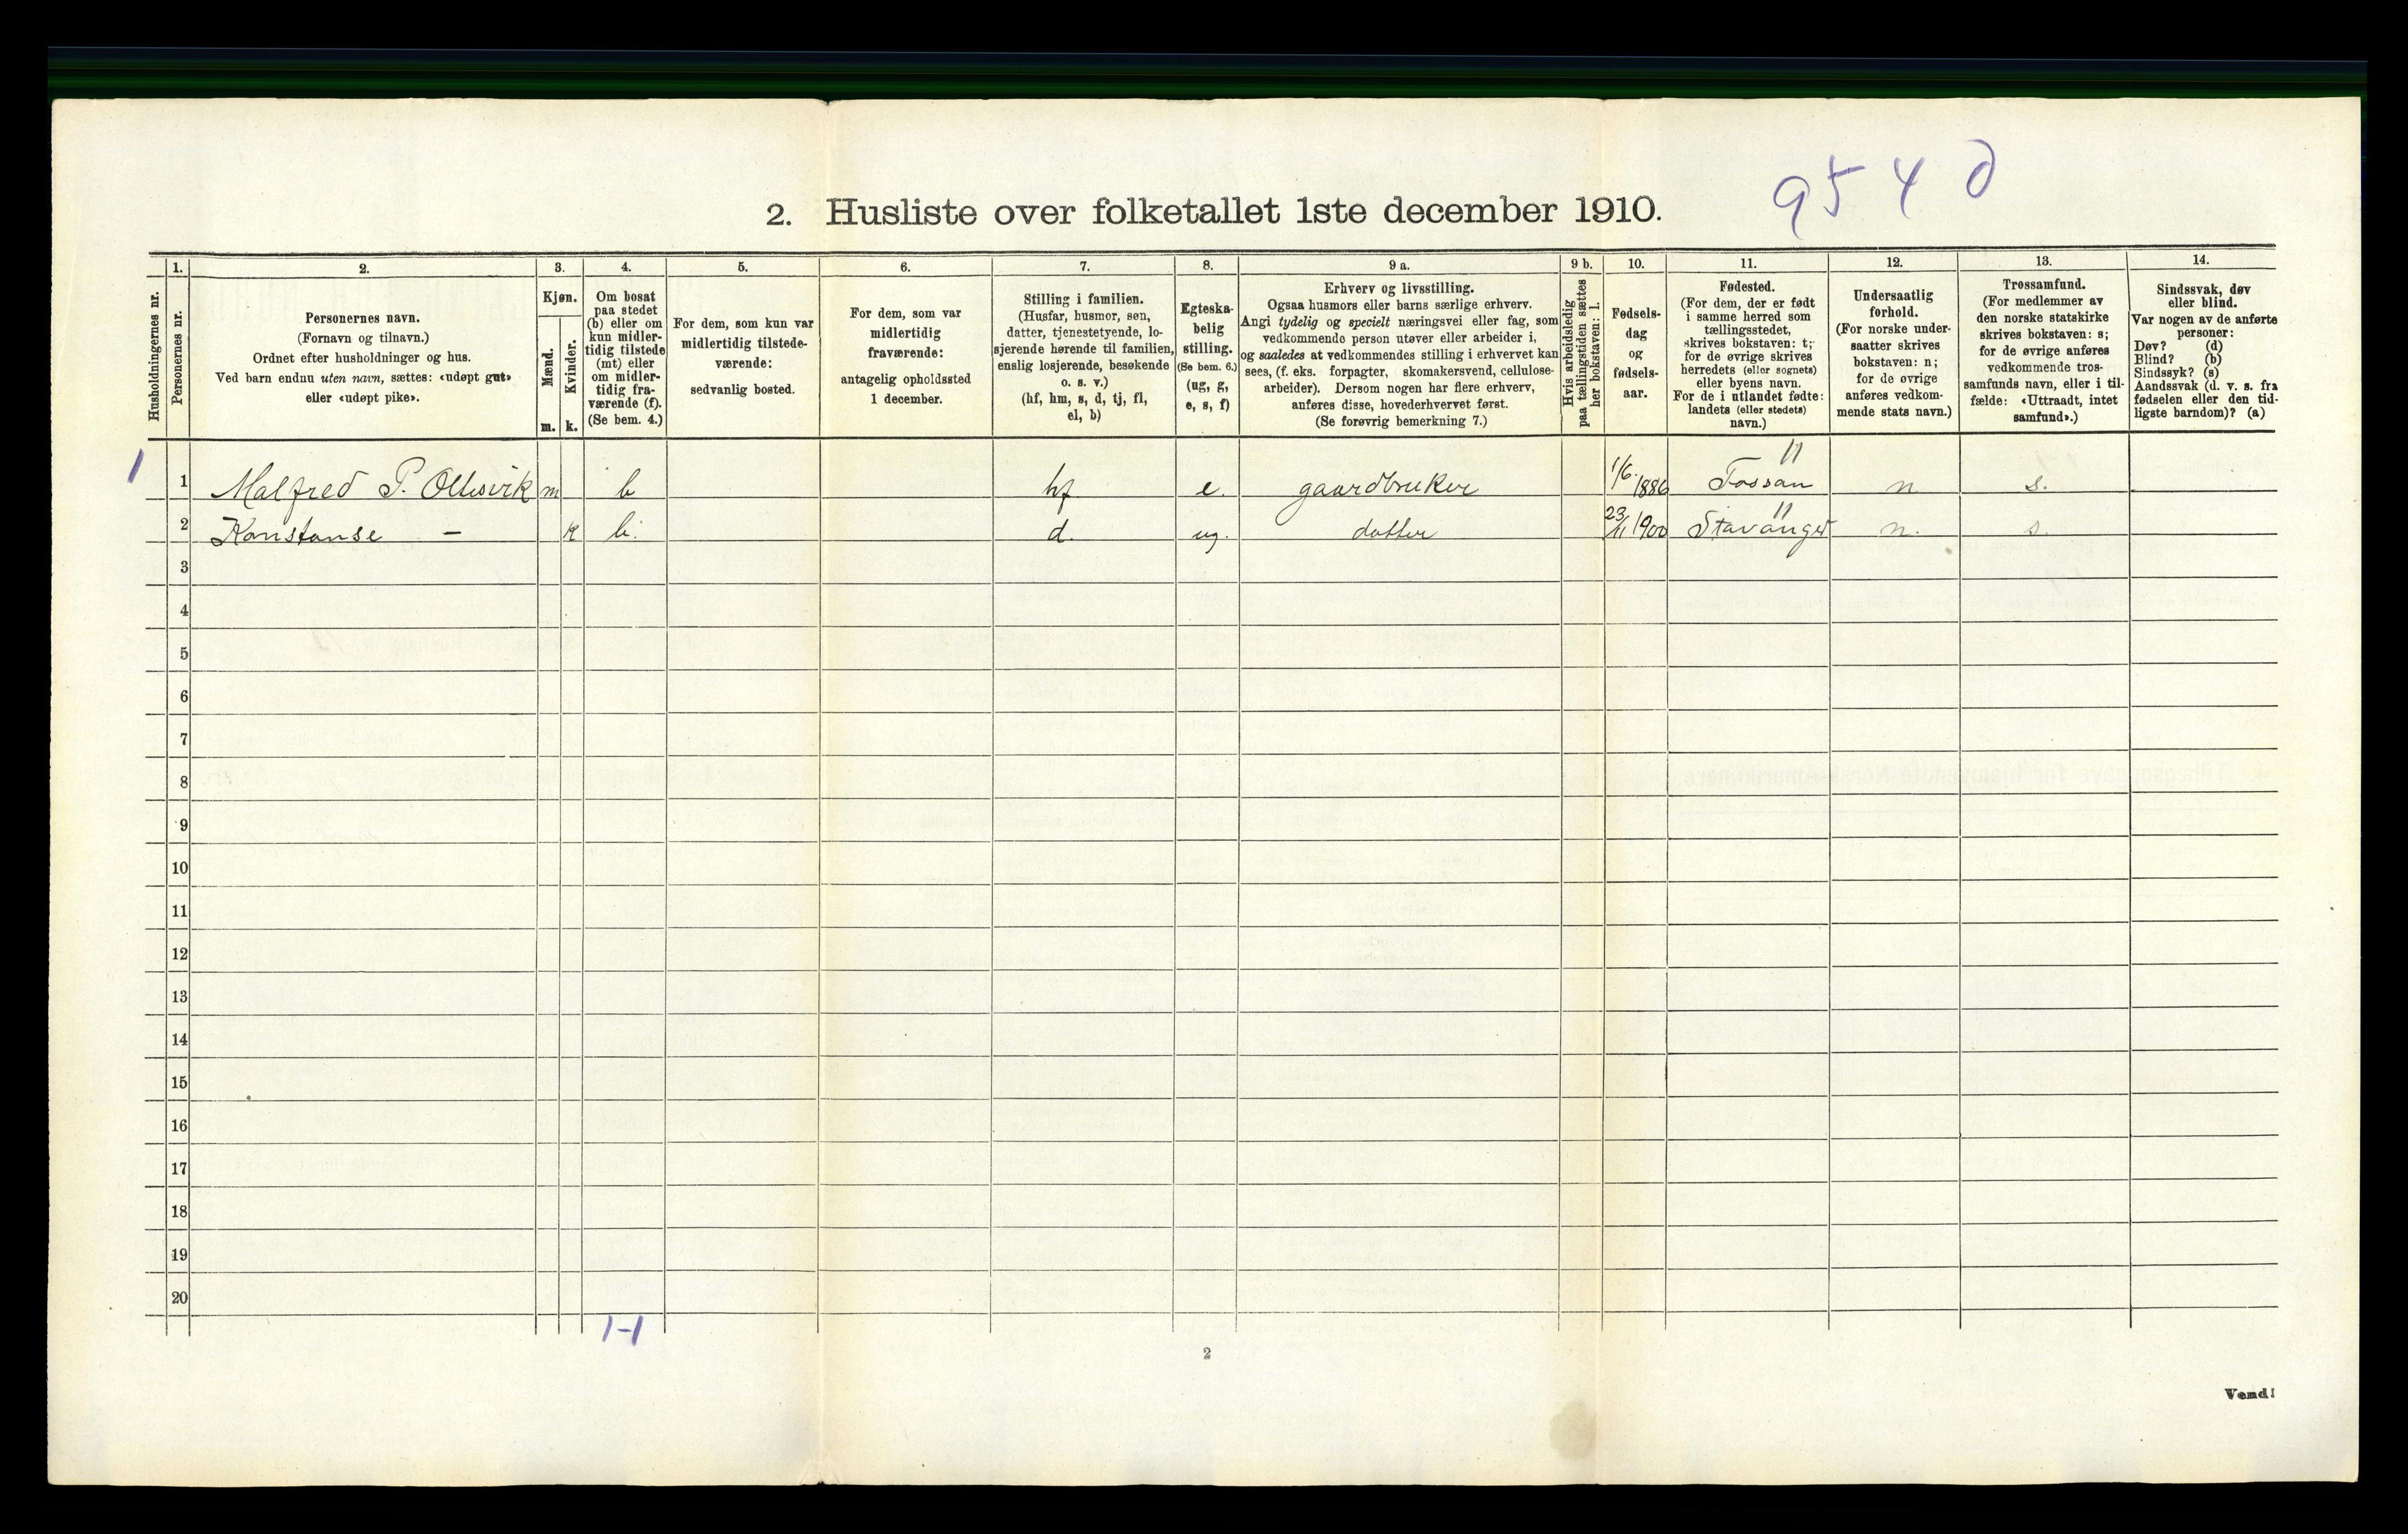 9540
2. Husliste over folketallet 1ste december 1910.
Husholdningernes nr.
1.
Personernes nr.
2.
Personernes navn.
(Fornavn og tilnavn.)
Ordnet efter husholdninger og hus.
Ved barn endnu uten navn, sættes: «udøpt gut»
eller «udøpt pike».
3.
Kjøn.
Mænd.
Kvinder.
m. k.
4.
Om bosat
paa stedet
(b) eller om
kun midler-
tidig tilstede
(mt) eller
om midler-
tidig fra-
værende (f).
(Se bem. 4.)
5.
For dem, som kun var
midlertidig tilstede-
værende:
sedvanlig bosted.
6.
For dem, som var
midlertidig
fraværende:
antagelig opholdssted
1 december.
7.
Stilling i familien.
(Husfar, husmor, søn,
datter, tjenestetyende, lo-
sjerende hørende til familien,
enslig losjerende, besøkende
o. s. v.)
(hf, hm, s, d, tj, fl,
el, b)
8.
Egteska-
belig
stilling.
(Se bem. 6.)
(ug, g,
e, s, f)
9 a.
Erhverv og livsstilling.
Ogsaa husmors eller barns særlige erhverv.
Angi tydelig og specielt næringsvei eller fag, som
vedkommende person utøver eller arbeider i,
og saaledes at vedkommendes stilling i erhvervet kan
sees, (f. eks. forpagter, skomakersvend, cellulose-
arbeider). Dersom nogen har flere erhverv,
anføres disse, hovederhvervet først.
(Se forøvrig bemerkning 7.)
9 b.
Hvis arbeidsledig
paa tællingstiden sættes
her bokstaven: l.
10.
Fødsels-
dag
og
fødsels-
aar.
11.
Fødested.
(For dem, der er født
i samme herred som
tællingsstedet,
skrives bokstaven: t;
for de øvrige skrives
herredets (eller sognets)
eller byens navn.
For de i utlandet fødte:
landets (eller stedets)
navn.)
12.
Undersaatlig
forhold.
(For norske under-
saatter skrives
bokstaven: n;
for de øvrige
anføres vedkom-
mende stats navn.)
13.
Trossamfund.
(For medlemmer av
den norske statskirke
skrives bokstaven: s;
for de øvrige anføres
vedkommende tros-
samfunds navn, eller i til-
fælde: «Uttraadt, intet
samfund».)
14.
Sindssvak, døv
eller blind.
Var nogen av de anførte
personer:
Døv? (d)
Blind? (b)
Sindssyk? (s)
Aandssvak (d. v. s. fra
fødselen eller den tid-
ligste barndom)? (a)
1 1 Malfred P. m b hf e. gaardbruker 1/6. 1886 11 Fossan n s.
2 Konstanse — k b. d. ug. datter 23/11 1900 11 Stavanger n. s.
3
4
5
6
7
8
9
10
11
12
13
14
15
16
17
18
19
20
1-1
2
Vend!